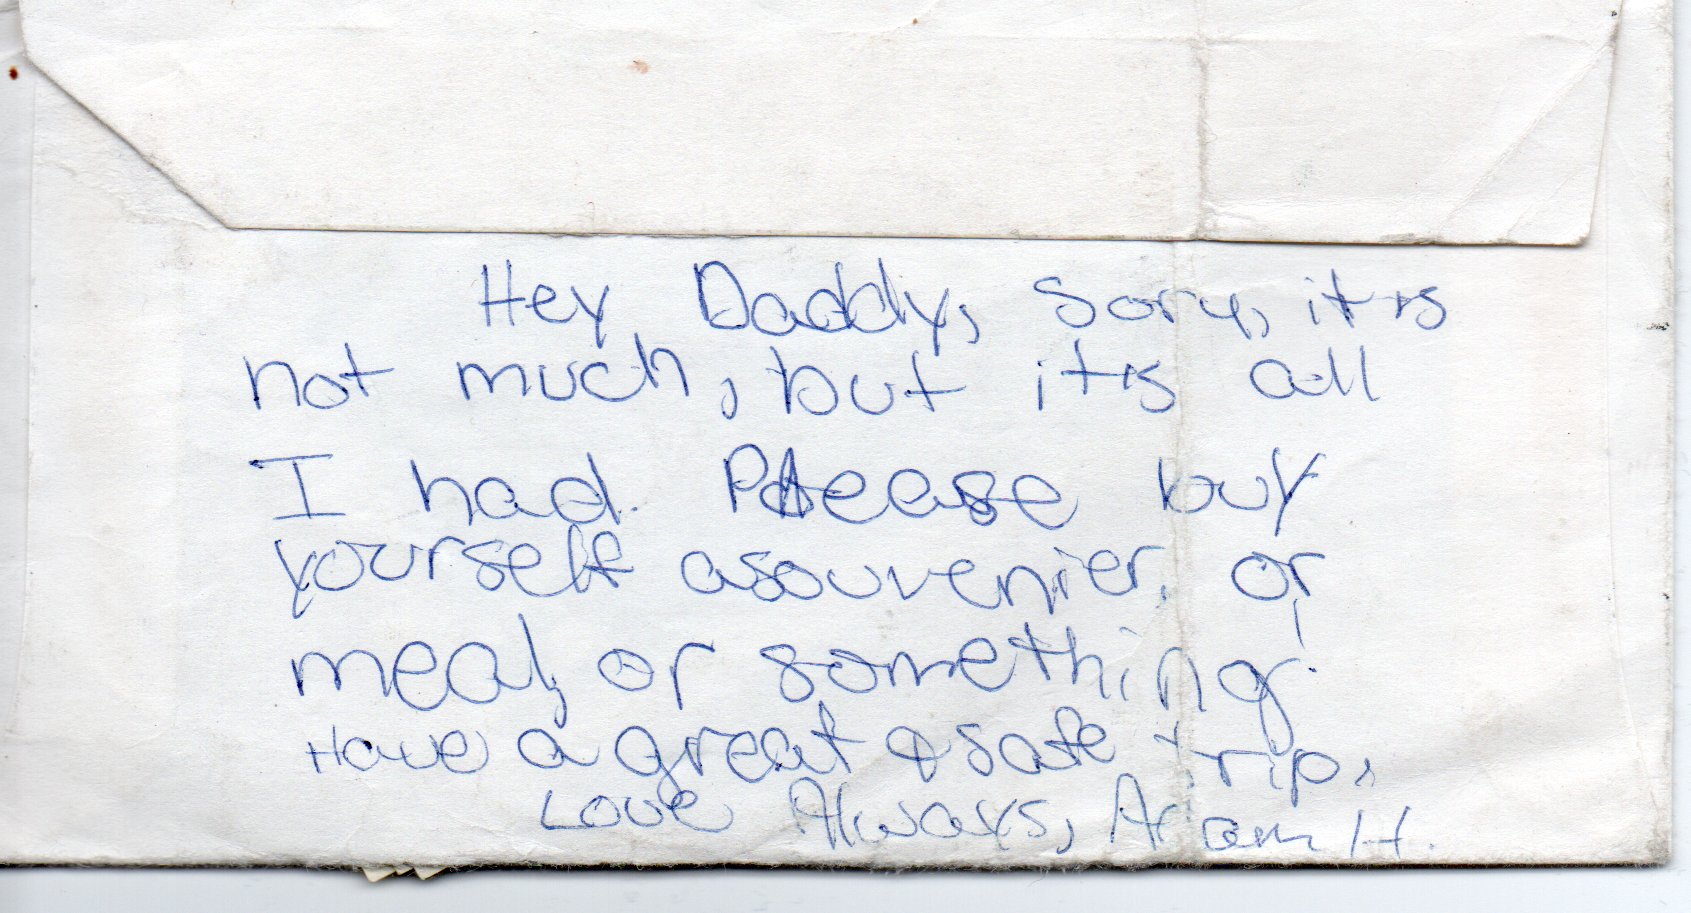 Hey Daddy, Sory, it is
not much, but it is all
I had. Please buy
yourself a souvenier, or
meal, or something!
Have a great & safe trip.
Love Always, H.